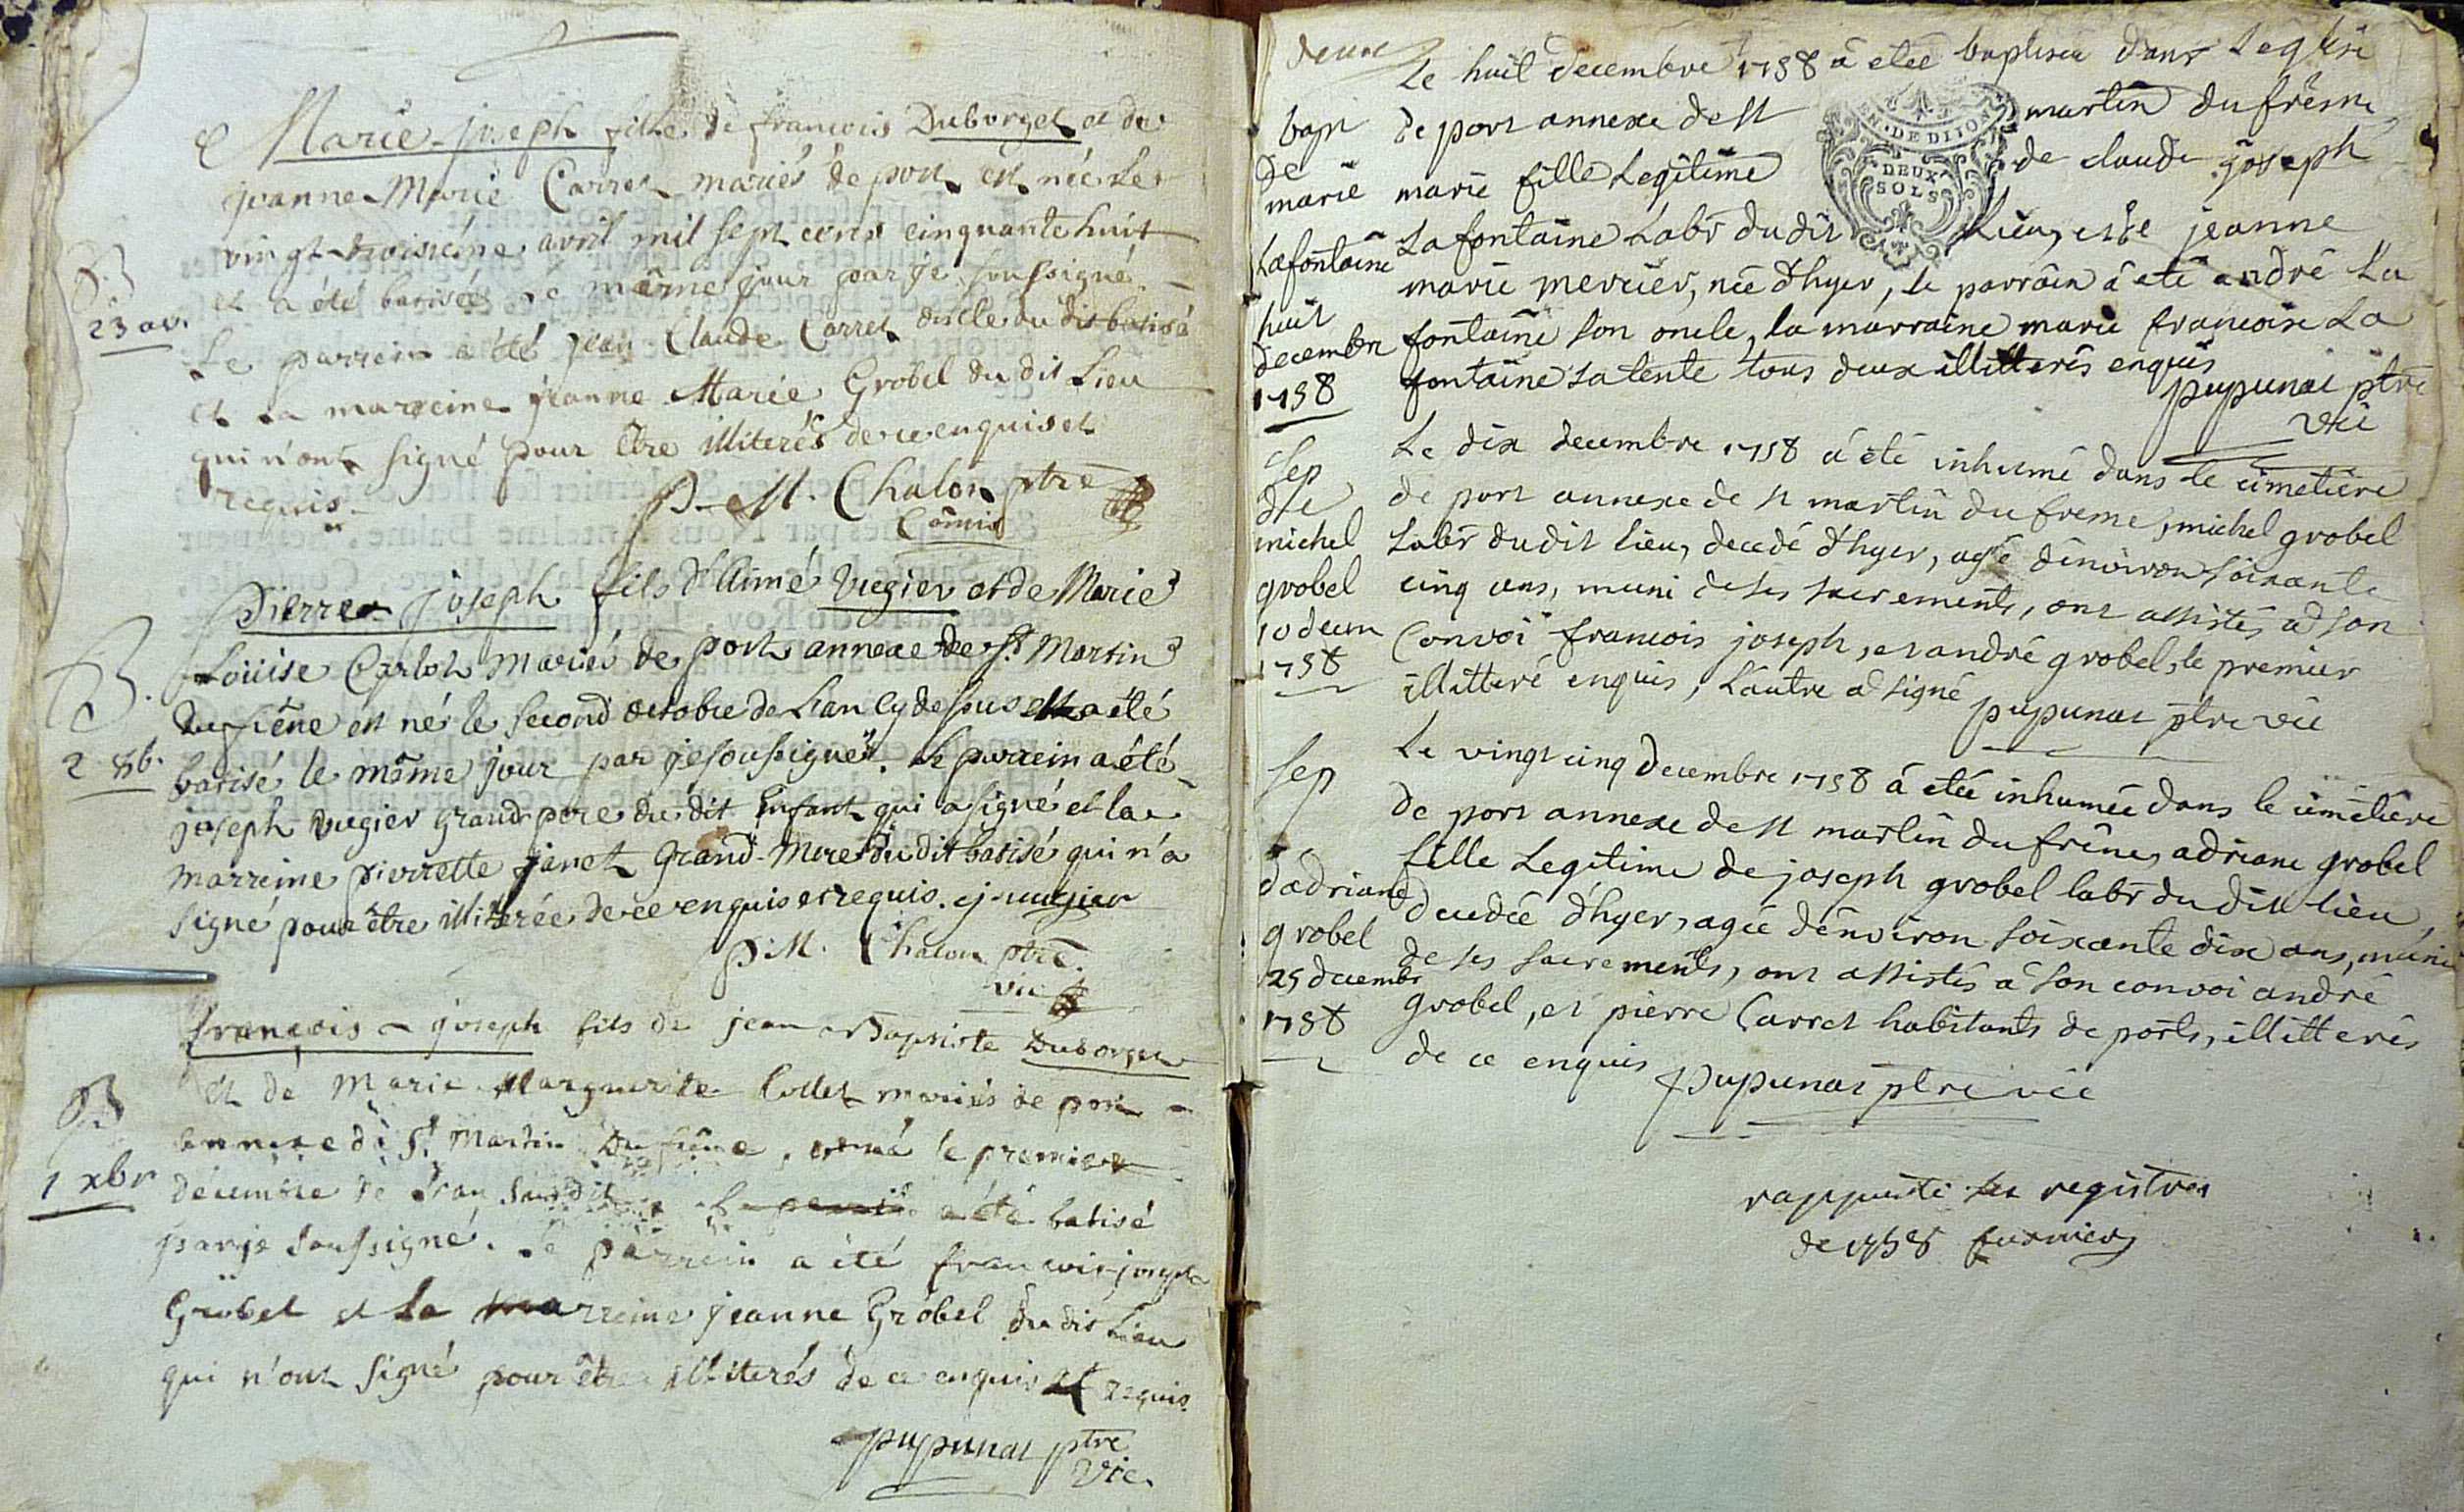 Marie-joseph fille de francois Duborget et de
jeanne Marie Carret mariés de port est née le
vingt-troisieme avril mil sept cents cinquante huit
et a été batisée le même jour par je soussigné.
B
23 av.
Le parrein a été jean Claude Carret oncle du dit batisé
et la marreine jeanne Marie Grobel du dit Lieu
qui n'ont signé pour être illiterés de ce enquis et
requis.
P. M. Chalon ptre
Cômis
Pierre joseph fils d'Aimé Vugier et de Marie
Loüise Carlot Mariés de port annexe de St Martin
Dufrêne est né le second octobre de L'an cy dessus et a été
B.
2 8b.
batisé le même jour par je soussigné. Le parrein a été
joseph vugier grand pere du dit Enfant qui a signé et la
marreine pierrette janet Grand-Mere du dit batisé qui n'a
signé pour être illiterée de ce enquis et requis. j vugier
P. M. Chalon ptre.
vic
françois - joseph fils de jean Baptiste Duborget
et de Marie Marguerite Collet mariés de port
annexe de St Martin Du frêne, est né le premier
B
1 xbr
decembre de L'an susdit a été batisé
par je soussigné. Le parrein a été francois-joseph
Grobel et la marreine jeanne Grobel du dit Lieu
qui n'ont signé pour être illiterés de ce enquis et requis.
pupunat ptre
vic.
deux
Le huit decembre 1758 á etée baptisée dans Leglise
de port annexe de st martin du frême,
marie fille Legitime de claude joseph
Lafontaine Labr dudit Lieu, et de jeanne
marie mercier, née d'hyer, le parrain á eté andré La
fontaine son oncle, la marraine marie francoise La
fontaine sa tente tous deux illitterés enquis
pupunat ptre
vic
bapt
de
marie
Lafontaine
huit
decembre
1758
EN. DE DIJON
DEUX
SOLS
Le dix decembre 1758 á eté inhumé dans le cimetiere
de port annexe de st martin du freme, michel grobel
Labr dudit lieu, decedé d'hyer, agé d'environ soixante
cinq ans, muni de ses sacrements, ont assistés á son
Convoi francois joseph, et andré grobel, le premier
illitteré enquis, L'autre á signé pupunat ptre vic
Sep
de
michel
grobel
10 decem
1758
Le vingt cinq decembre 1758 á etée inhumée dans le cimetiere
de port annexe de st martin du frêne, adriane grobel
fille Legitime de joseph grobel labr du dit lieu,
decedée d'hyer, agée d'environ soixante dix ans, munie
de ses sacrements, ont assistés á son convoi andré
grobel, et pierre Carret habitants de ports, illitterés
de ce enquis pupunat ptre vic
Sep
d'adriane
grobel
25 decembr
1758
rapporté les registres
de 1758